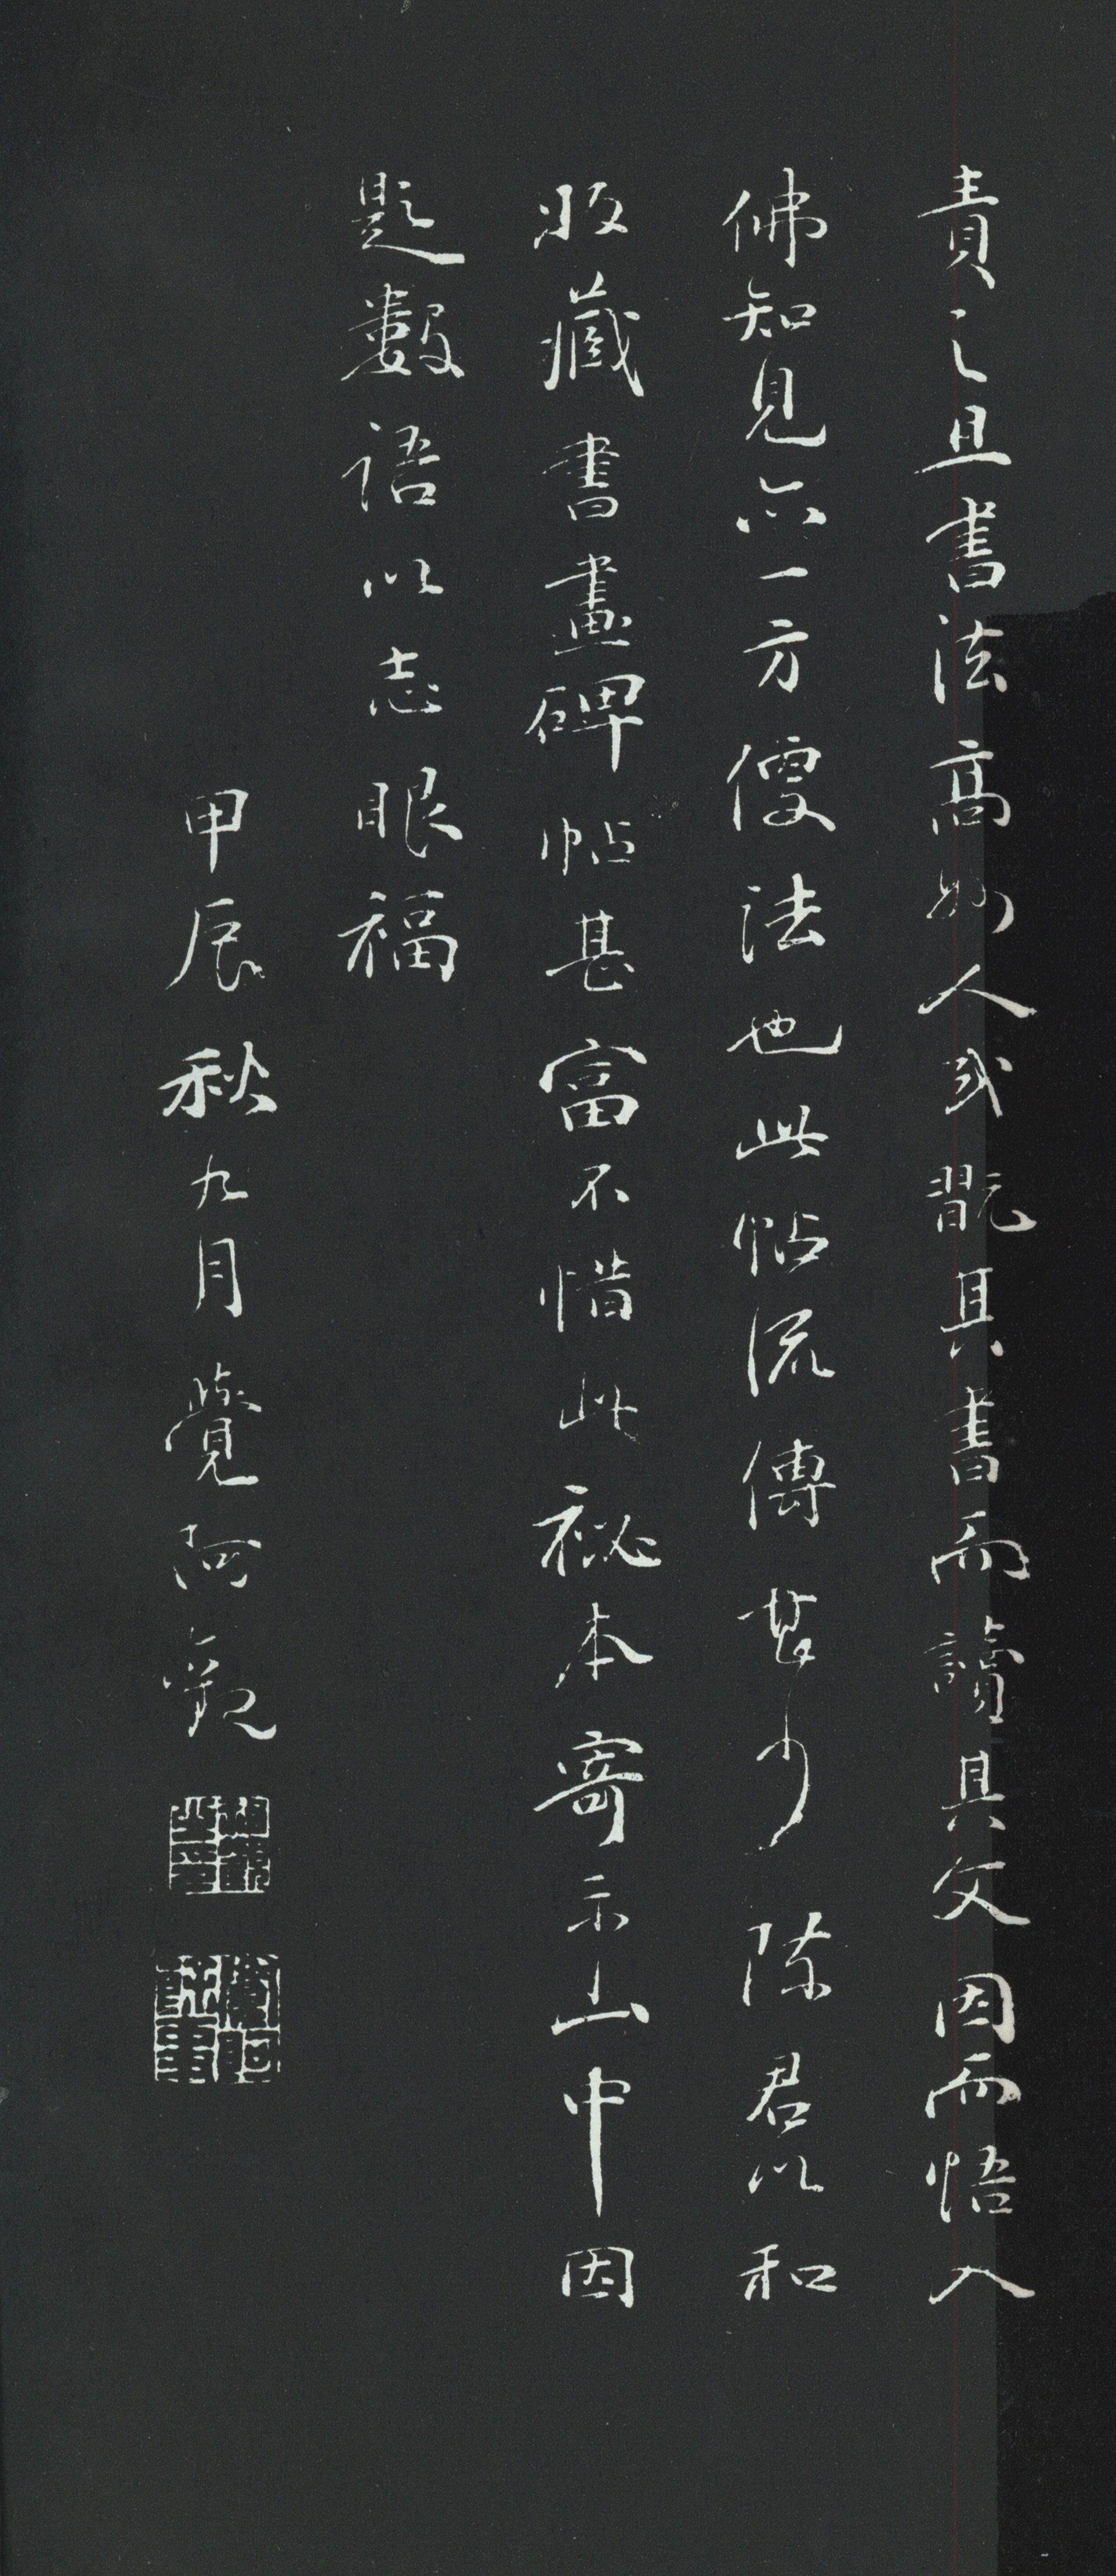 責之且書法高妙人或翫其書而讀其文因而悟入
佛知見亦一方便法也此帖流傳甚少陳君以和
收藏書畫碑帖甚富不惜此祕本寄示山中因
題數語以志眼福
甲辰秋九月覺阿觀